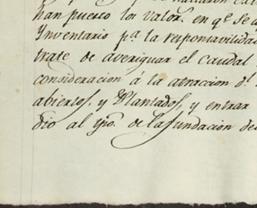 han puesto los valors. en qe. se a
Ynventario pa. la responsavilidad
trate de averiguar el caudal
consideracion à la atraccion d.
abiertos, y Plantados, y entrar
dio al tpo. de la fundacion de